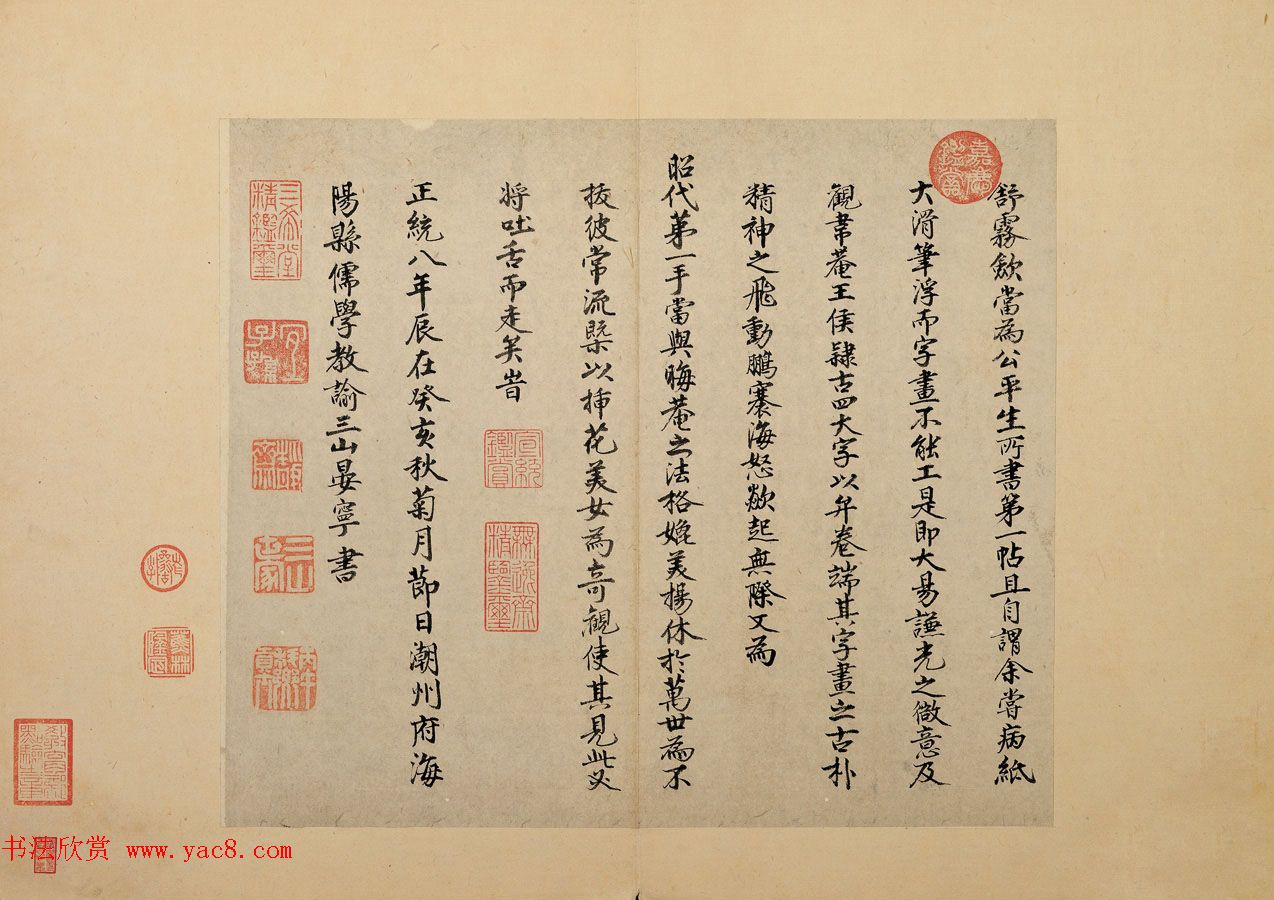 舒霧歛當為公平生所書第一帖且自謂余嘗病紙
大滑筆浮而字畫不能工是即大易謙光之微意及
觀韋菴王侯隸古四大字以弁卷端其字畫之古朴
精神之飛動鵬騫海怒歘起無際又為
昭代第一手當與晦菴之法格媲美揚休於萬世為不
拔彼常流槩以插花美女為奇觀使其見此必
將吐舌而走矣旹
正統八年辰在癸亥秋菊月節日潮州府海
陽縣儒學教諭三山晏寧書
嘉慶鑑賞
三希堂精鑑璽
宣統鑑賞
無逸齋精鑑璽
三山世家
蕉林
书法欣赏 www.yac8.com